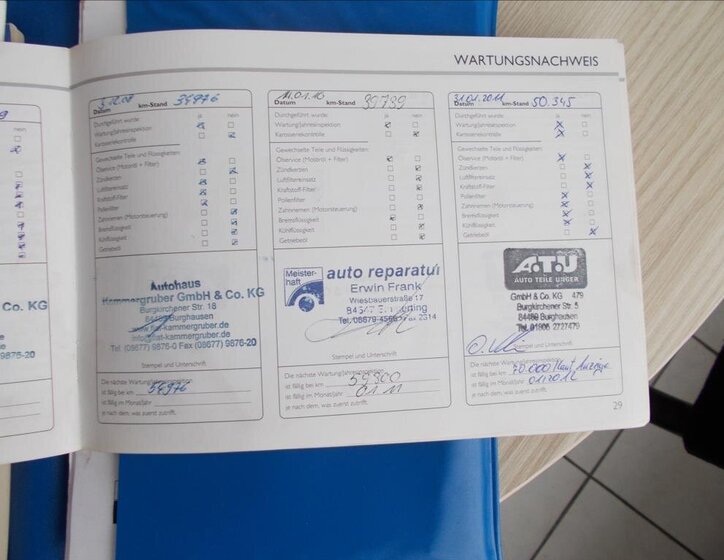 WARTUNGSNACHWEIS
34976
Datum km-Stand
Durchgeführt wurde: ja nein
Wartung/Jahresinspektion
Karosseriekontrolle
Gewechselte Teile und Flüssigkeiten:
Ölservice (Motoröl + Filter)
Zündkerzen
Luftfiltereinsatz
Kraftstoff-Filter
Pollenfilter
Zahnriemen (Motorsteuerung)
Bremsflüssigkeit
Kühlflüssigkeit
Getriebeöl
Autohaus
Kammergruber GmbH & Co. KG
Burgkirchener Str. 18
84489 Burghausen
www.fiat-kammergruber.de
info@fiat-kammergruber.de
Tel. (08677) 9876-0 Fax (08677) 9876-20
Stempel und Unterschrift
Die nächste Wartung/Jahresinspektion
ist fällig bei km 54976
ist fällig im Monat/Jahr
je nach dem, was zuerst zutrifft.
11.01.10 39739
Datum km-Stand
Durchgeführt wurde: ja nein
Wartung/Jahresinspektion
Karosseriekontrolle
Gewechselte Teile und Flüssigkeiten:
Ölservice (Motoröl + Filter)
Zündkerzen
Luftfiltereinsatz
Kraftstoff-Filter
Pollenfilter
Zahnriemen (Motorsteuerung)
Bremsflüssigkeit
Kühlflüssigkeit
Getriebeöl
Meister-
haft
auto reparatur
Erwin Frank
Wiesbauerstraße 17
Stempel und Unterschrift
Die nächste Wartung/Jahresinspektion
ist fällig bei km
ist fällig im Monat/Jahr 01 11
je nach dem, was zuerst zutrifft.
31.01.2011 50.345
Datum km-Stand
Durchgeführt wurde: ja nein
Wartung/Jahresinspektion
Karosseriekontrolle
Gewechselte Teile und Flüssigkeiten:
Ölservice (Motoröl + Filter)
Zündkerzen
Luftfiltereinsatz
Kraftstoff-Filter
Pollenfilter
Zahnriemen (Motorsteuerung)
Bremsflüssigkeit
Kühlflüssigkeit
Getriebeöl
A.T.U
AUTO TEILE UNGER
GmbH & Co. KG 479
Burgkirchener Str. 5
84489 Burghausen
Tel. 01806 2727479
Stempel und Unterschrift
Die nächste Wartung/Jahresinspektion
ist fällig bei km 70.000 laut Anzeige
ist fällig im Monat/Jahr
je nach dem, was zuerst zutrifft.
29
Co. KG
9876-20